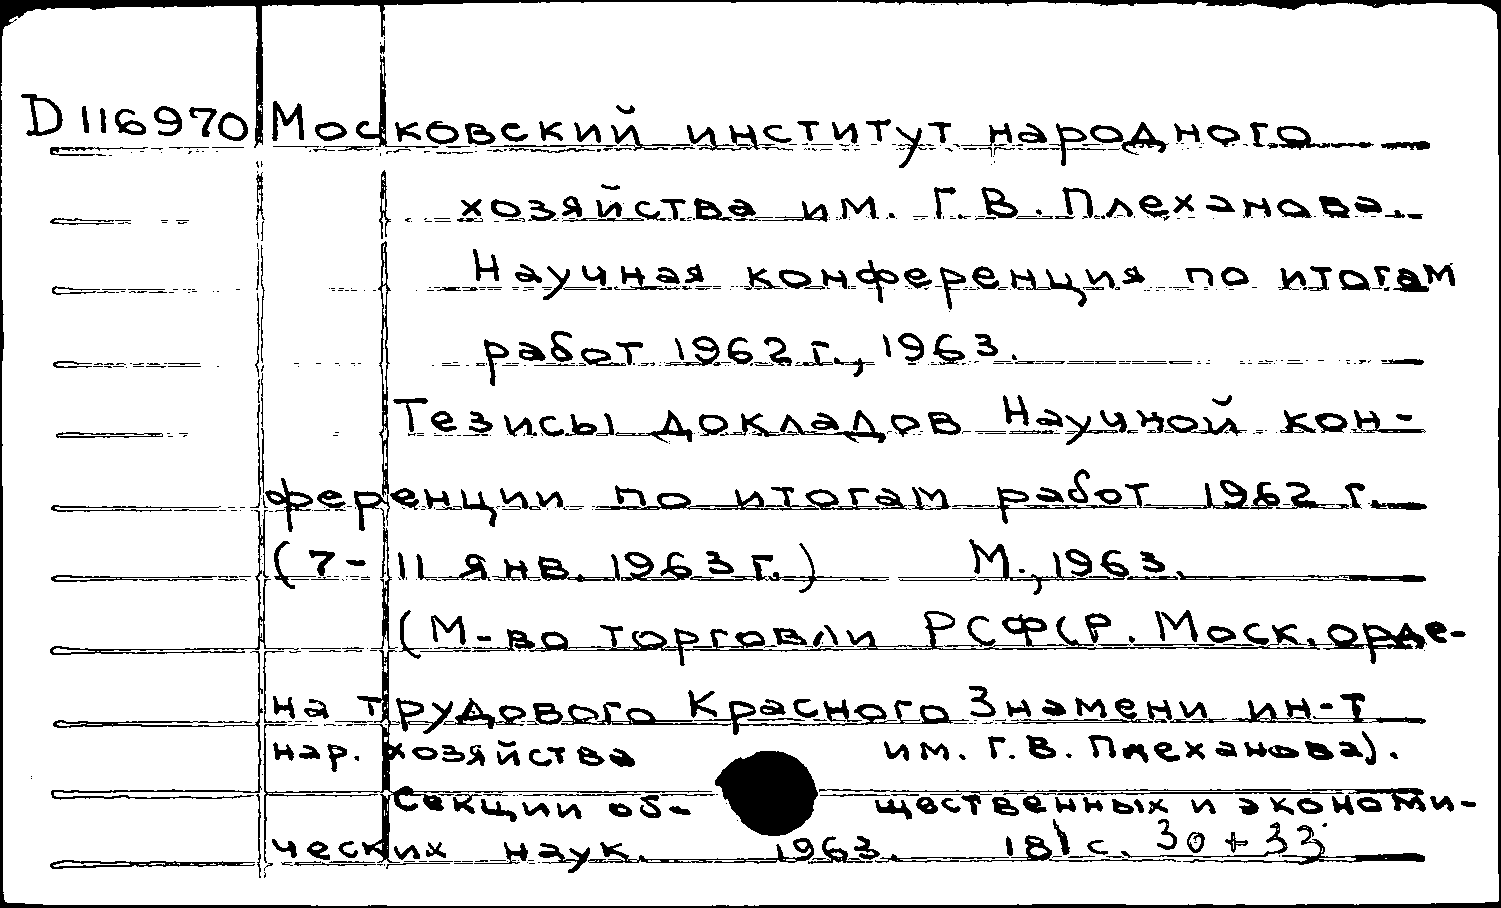 D116970 Московский институт народного
хозяйства им. Г. В. Плеханова.
Научная конференция по итогам
работ 1962 г., 1963.
Тезисы докладов Научной кон-
ференции по итогам работ 1962 г.
(7-11 янв. 1963 г.) М., 1963.
(М-во торговли РСФСР. Моск. орде-
на трудового Красного Знамени ин-т
нар. хозяйства им. Г. В. Плеханова).
Секции об- щественных и экономи-
ческих наук. 1963. 181 с. 30+33